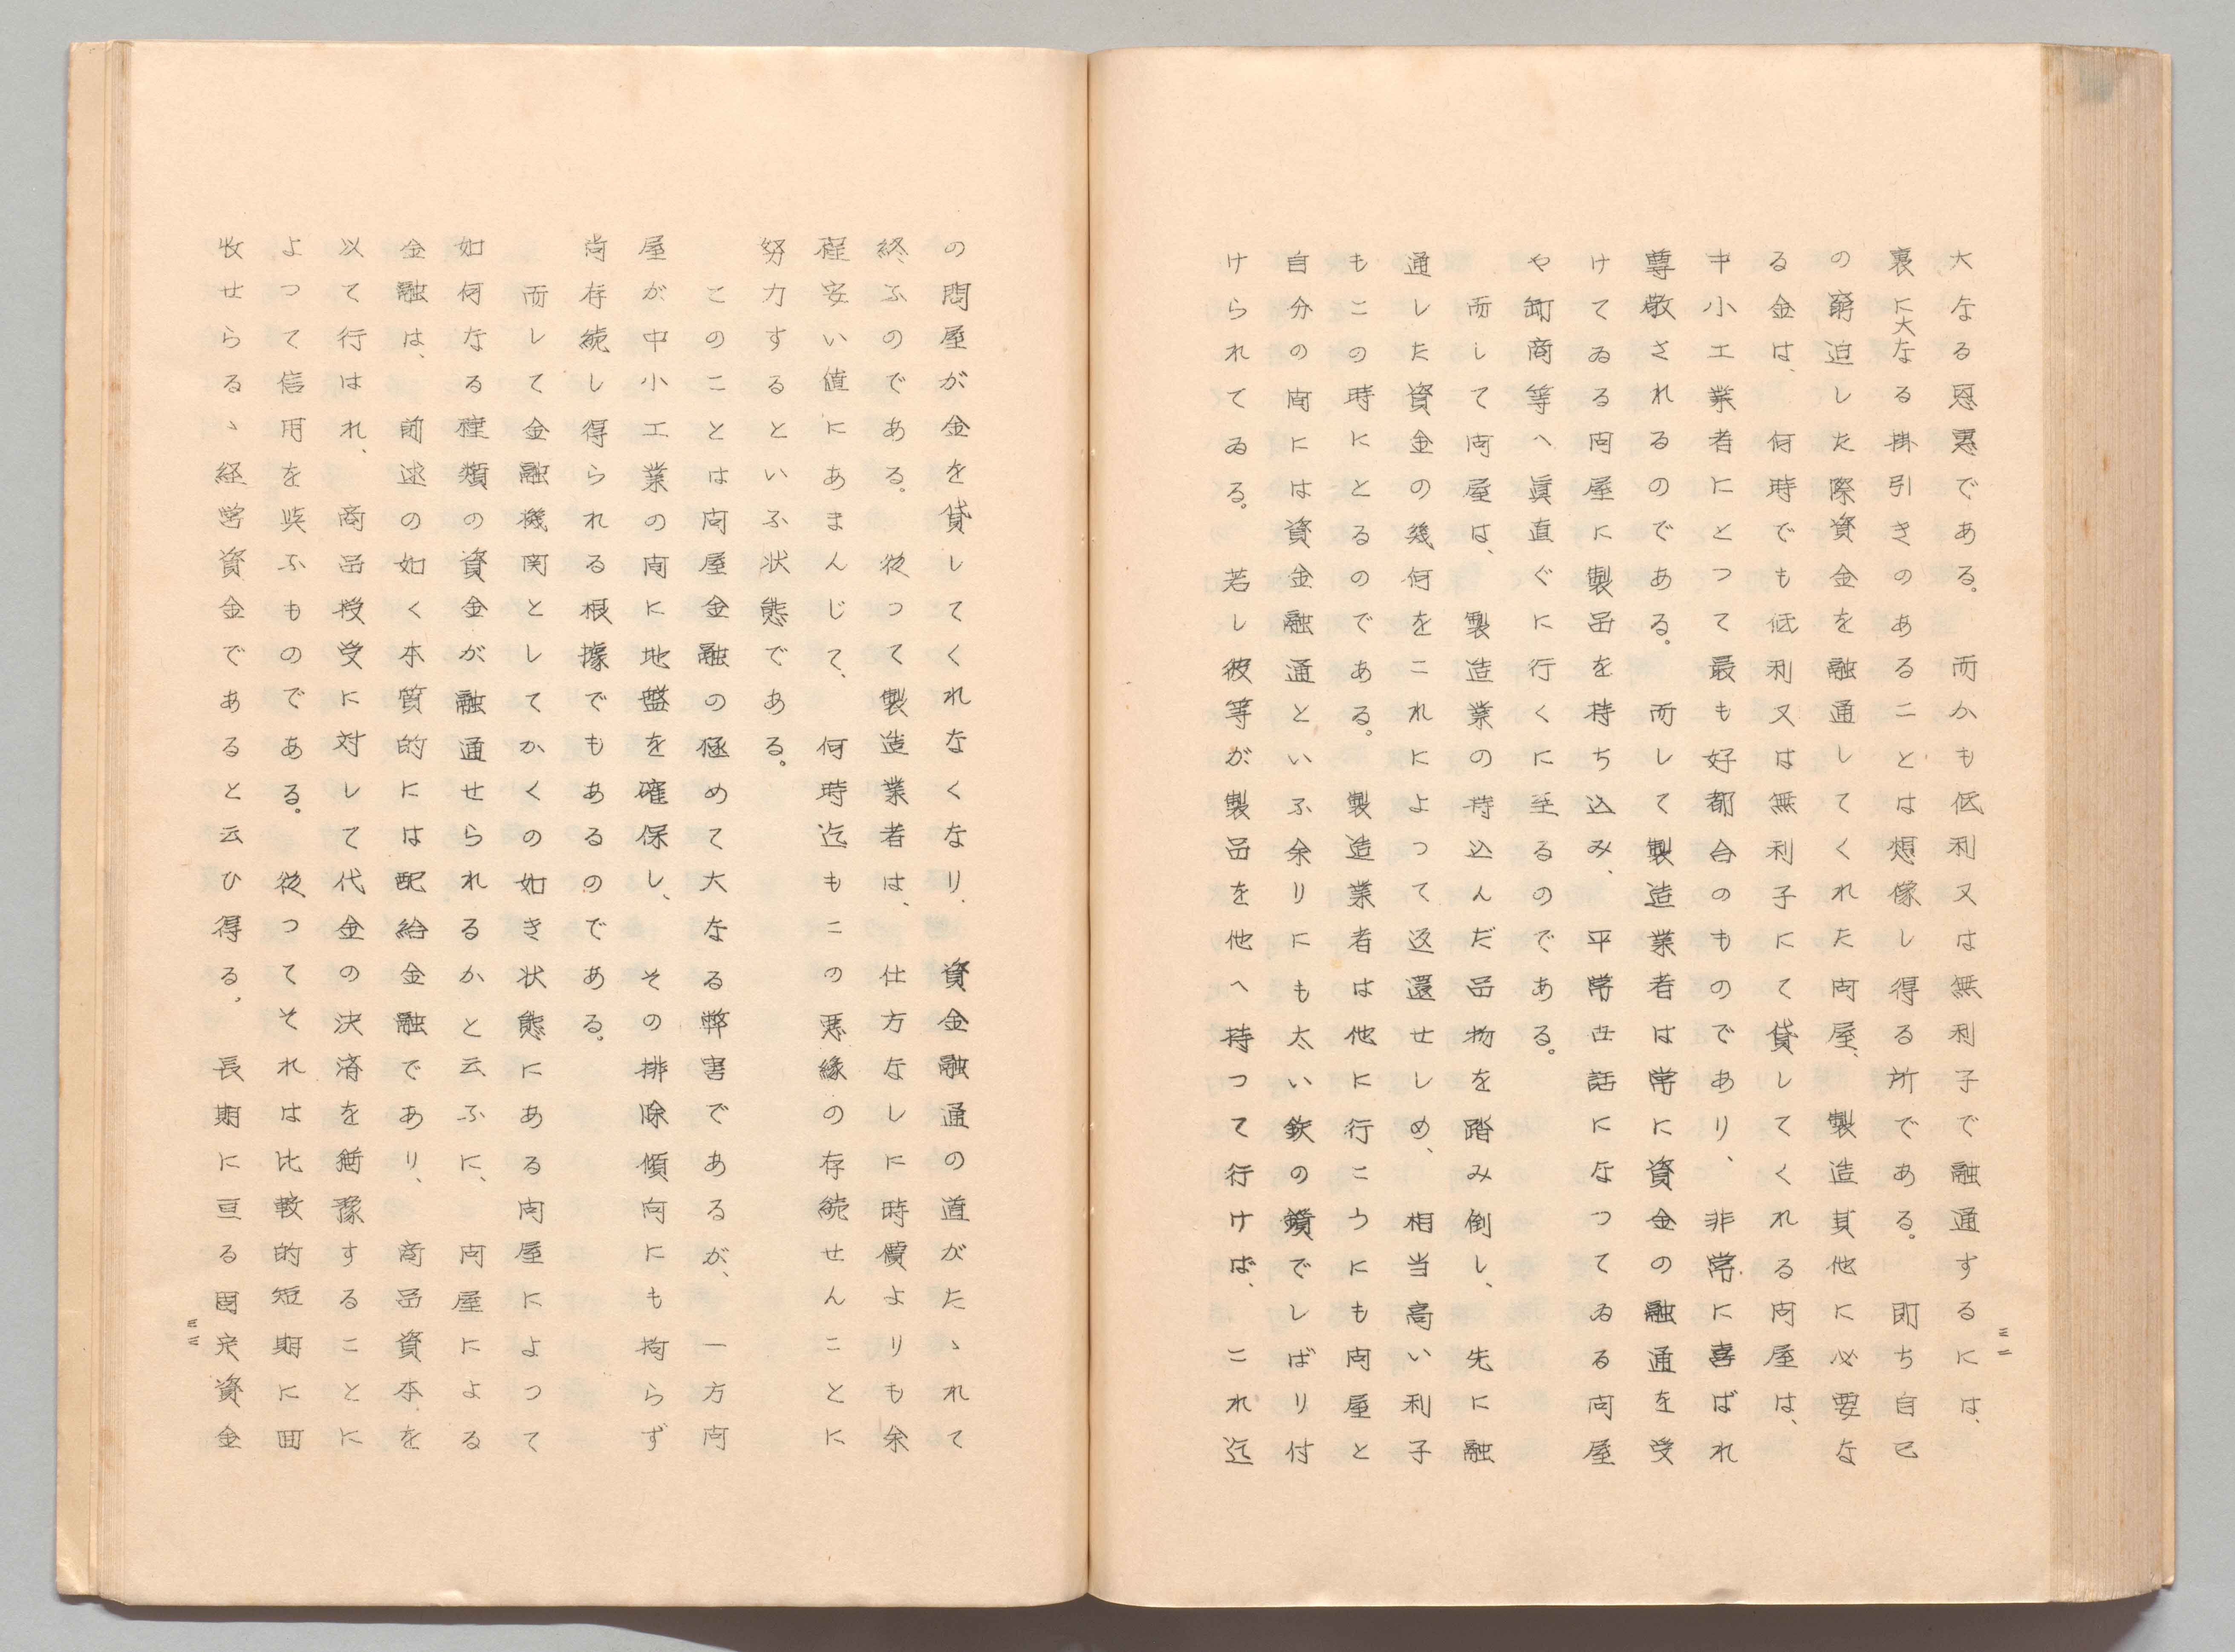 三二
大なる恩惠である。而かも低利又は無利子で融通するには、
裏に大なる掛引きのあることは想像し得る所である。即ち自己
の窮迫した際資金を融通してくれた問屋、製造其他に必要な
る金は、何時でも低利又は無利子にて貸してくれる問屋は、
中小工業者にとつて最も好都合のものであり、非常に喜ばれ
尊敬されるのである。而して製造業者は常に資金の融通を受
けてゐる問屋に製品を持ち込み、平常世話になつてゐる問屋
や卸商等へ眞直ぐに行くに至るのである。
而して問屋は、製造業の持込んだ品物を踏み倒し、先に融
通した資金の幾何をこれによつて返還せしめ、相当高い利子
もこの時にとるのである。製造業者は他に行こうにも問屋と
自分の間には資金融通といふ余りにも太い鉄の鎖でしばり付
けられてゐる。若し彼等が製品を他へ持つて行けば、これ迄
の問屋が金を貸してくれなくなり、資金融通の道がたゝれて
終ふのである。從つて製造業者は、仕方なしに時價よりも余
程安い値にあまんじて、何時迄もこの悪緣の存続せんことに
努力するといふ状態である。
このことは問屋金融の極めて大なる弊害であるが、一方問
屋が中小工業の間に地盤を確保し、その排除傾向にも拘らず
尚存続し得られる根據でもあるのである。
而して金融機関としてかくの如き状態にある問屋によつて
如何なる種類の資金が融通せられるかと云ふに、問屋による
金融は、前述の如く本質的には配給金融であり、商品資本を
以て行はれ、商品授受に対して代金の決済を猶豫することに
よつて信用を與ふものである。從つてそれは比較的短期に回
收せらるゝ経営資金であると云ひ得る。長期に亘る固定資金
三三